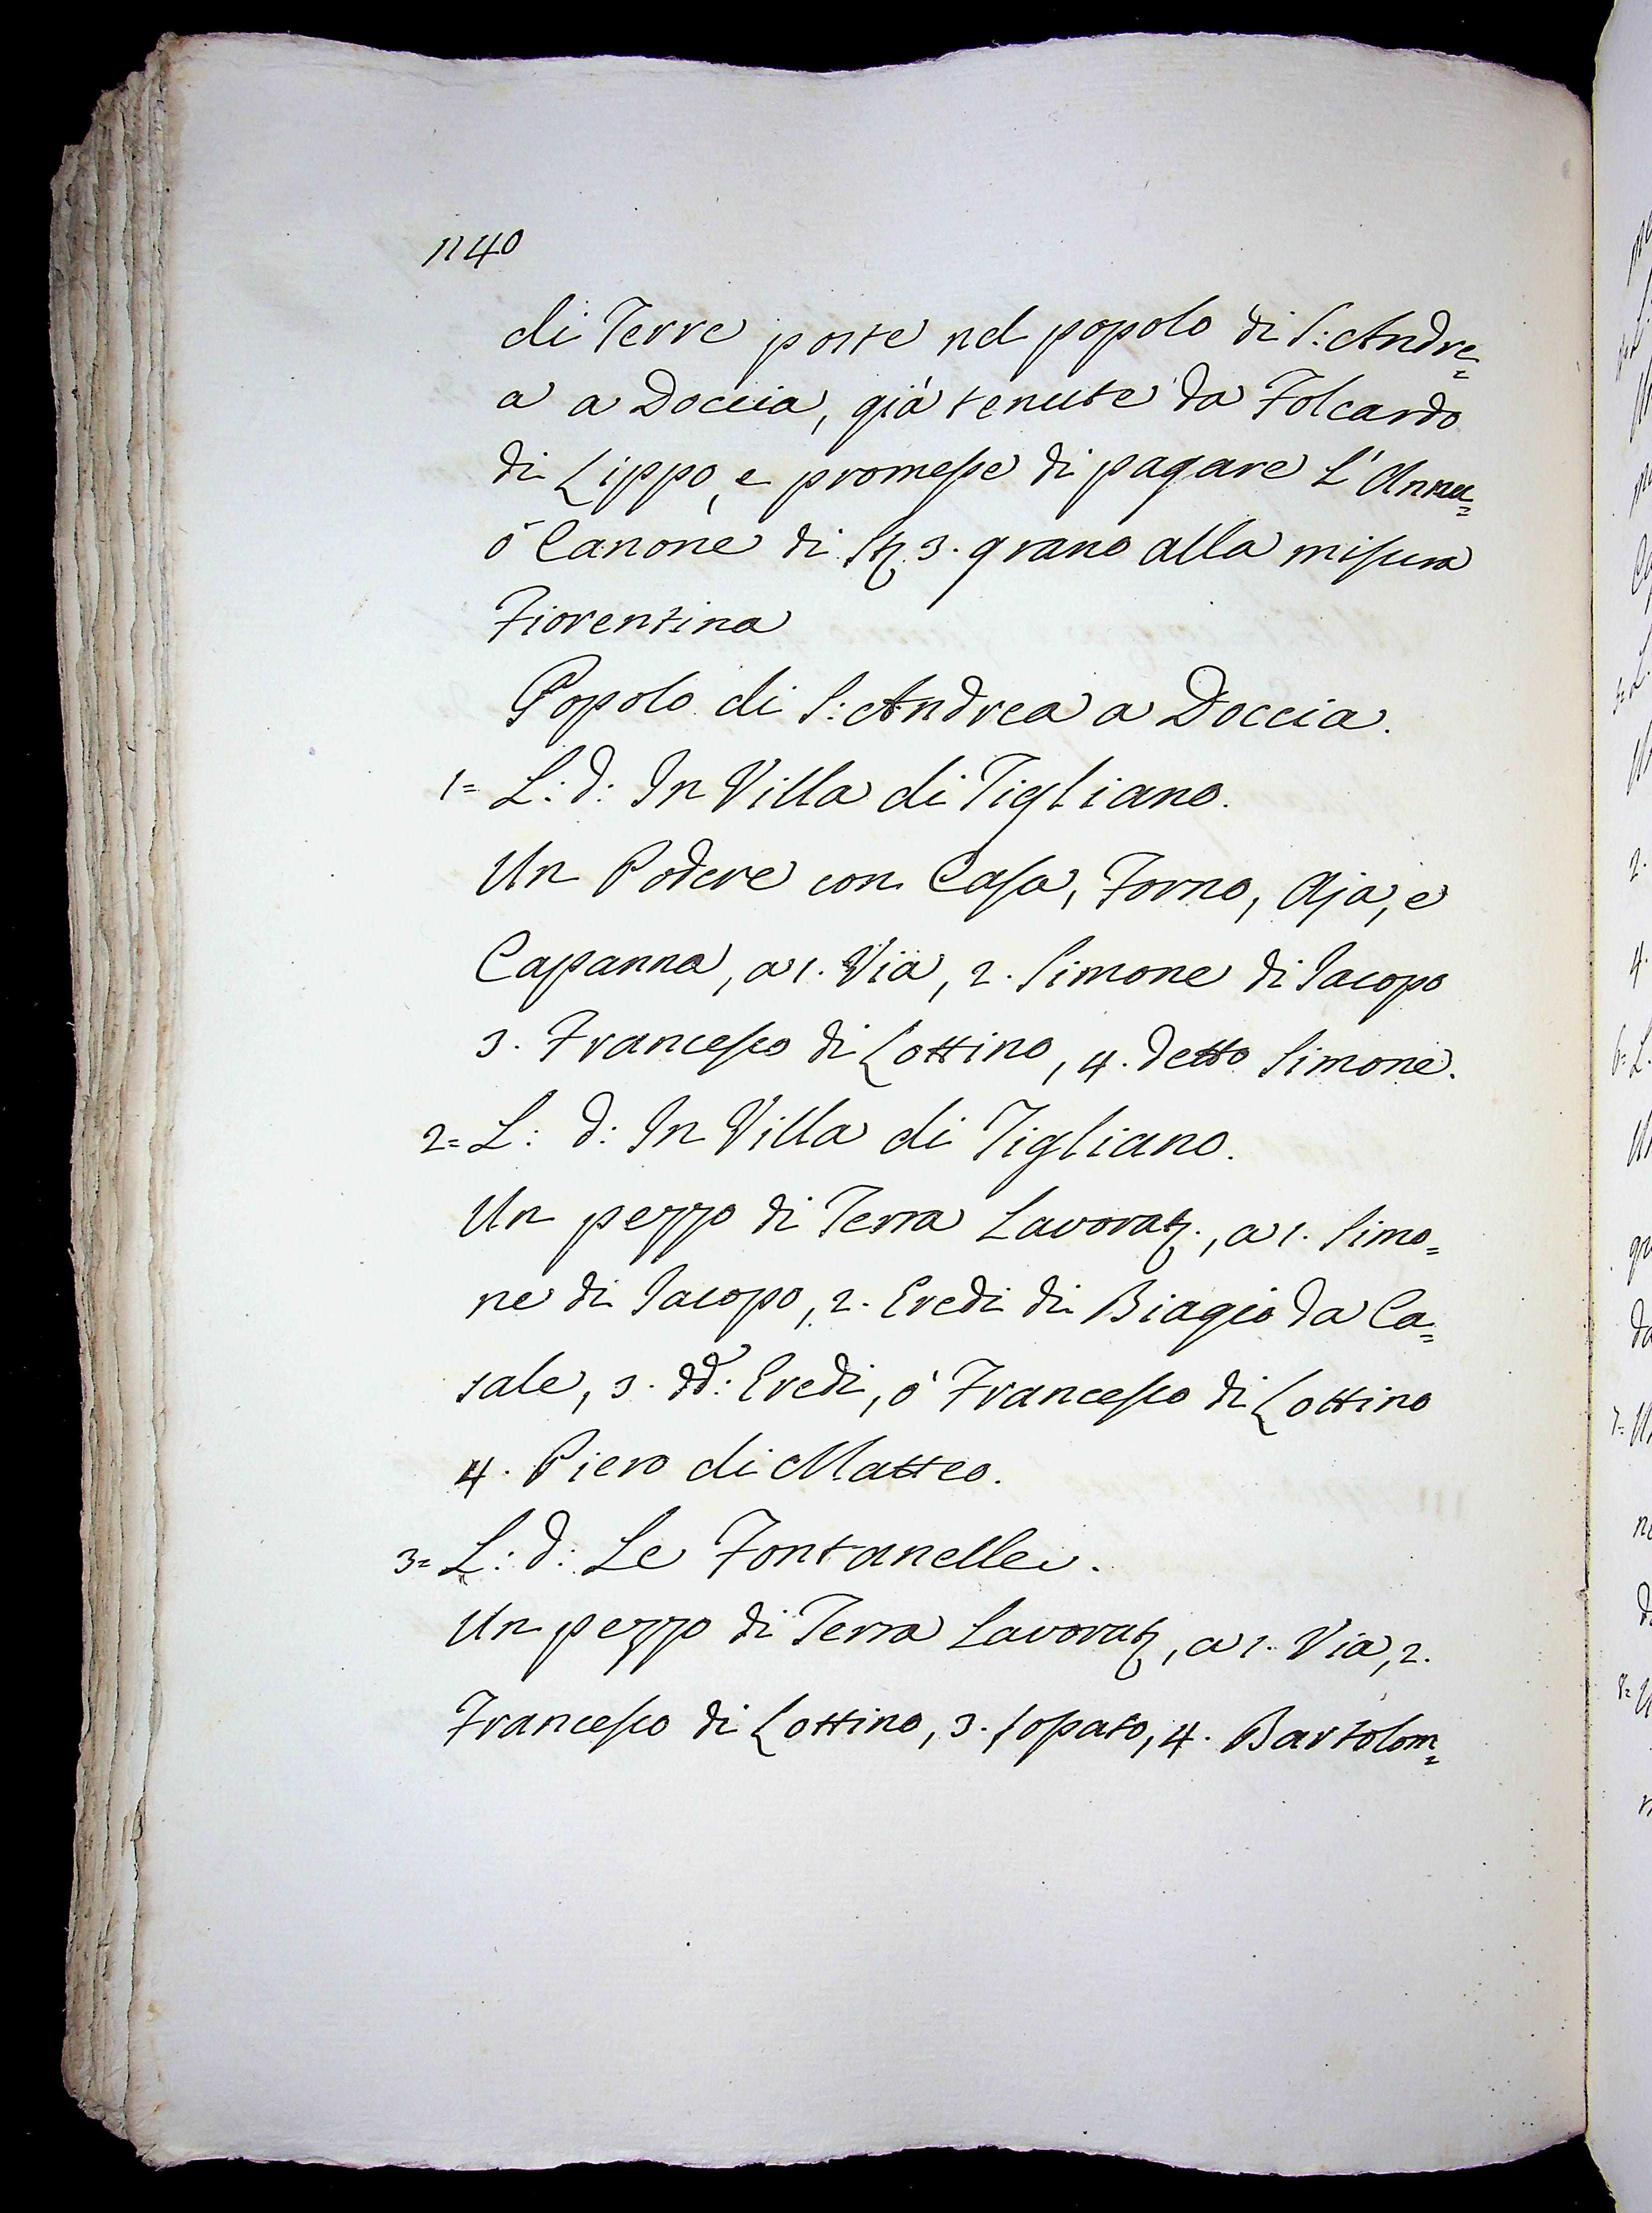 1140
di Terre poste nel popolo di S: Andre=
a a Doccia, già tenute da Folcardo
di Lippo, e promesse di pagare l'Annu=
o Canone di Sta 3. grano alla misura
Fiorentina
Popolo di S: Andrea a Doccia.
1= L: d: In Villa di Tigliano.
Un Podere con Casa, Forno, Aja, e
Capanna, a 1. Via, 2. Simone di Jacopo
3. Francesco di Lottino, 4. detto Simone.
2= L: d: In Villa di Tigliano.
Un pezzo di Terra Lavorat., a 1. Simo=
ne di Jacopo, 2. Eredi di Biagio da Ca=
sale, 3. dd: Eredi, ò Francesco di Lottino
4. Piero di Matteo.
3= L: d: Le Fontanelle.
Un pezzo di Terra Lavorat, a 1. Via, 2.
Francesco di Lottino, 3. fossato, 4. Bartolom=